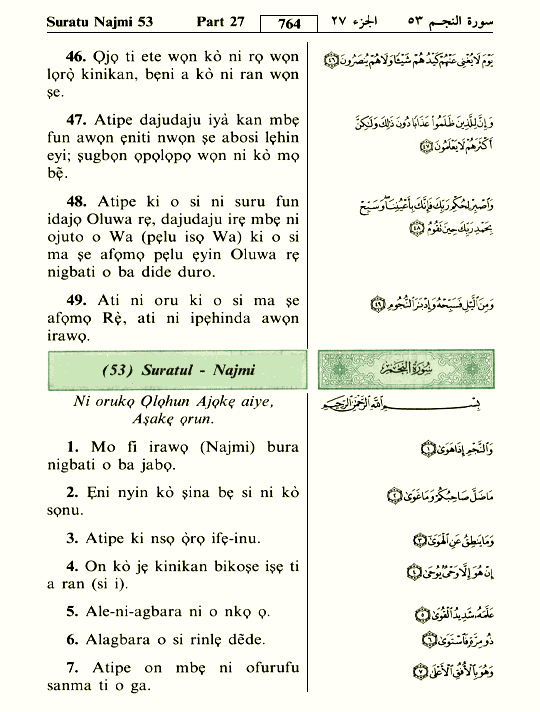 Suratu Najmi 53 Part 27 764 الجزء ٢٧ سورة النجم ٥٣
46. Ọjọ ti ete wọn kò ni rọ wọn
lọrọ̀ kinikan, bẹni a kò ni ran wọn
ṣe.
47. Atipe dajudaju iyà kan mbẹ
fun awọn ẹniti nwọn ṣe abosi lẹhin
eyi; ṣugbọn ọpọlọpọ wọn ni kò mọ
bẹ̃.
48. Atipe ki o si ni suru fun
idajọ Oluwa rẹ, dajudaju irẹ mbẹ ni
ojuto o Wa (pẹlu isọ Wa) ki o si
ma ṣe afọmọ pẹlu ẹyin Oluwa rẹ
nigbati o ba dide duro.
49. Ati ni oru ki o si ma ṣe
afọmọ Rẹ̀, ati ni ipẹhinda awọn
irawọ.
(53) Suratul - Najmi
Ni orukọ Ọlọhun Ajọkẹ aiye,
Aṣakẹ ọrun.
1. Mo fi irawọ (Najmi) bura
nigbati o ba jabọ.
2. Ẹni nyin kò ṣina bẹ si ni kò
sọnu.
3. Atipe ki nsọ ọ̀rọ ifẹ-inu.
4. On kò jẹ kinikan bikoṣe iṣẹ ti
a ran (si i).
5. Ale-ni-agbara ni o nkọ ọ.
6. Alagbara o si rinlẹ dẽde.
7. Atipe on mbẹ ni ofurufu
sanma ti o ga.
يَوْمَ لَا يُغْنِي عَنْهُمْ كَيْدُهُمْ شَيْئًا وَلَا هُمْ يُنصَرُونَ ٤٦
وَإِنَّ لِلَّذِينَ ظَلَمُوا۟ عَذَابًا دُونَ ذَٰلِكَ وَلَٰكِنَّ
أَكْثَرَهُمْ لَا يَعْلَمُونَ ٤٧
وَٱصْبِرْ لِحُكْمِ رَبِّكَ فَإِنَّكَ بِأَعْيُنِنَا ۖ وَسَبِّحْ
بِحَمْدِ رَبِّكَ حِينَ تَقُومُ ٤٨
وَمِنَ ٱلَّيْلِ فَسَبِّحْهُ وَإِدْبَٰرَ ٱلنُّجُومِ ٤٩
سُورَةُ النَّجْمِ
بِسْمِ ٱللَّهِ ٱلرَّحْمَٰنِ ٱلرَّحِيمِ
وَٱلنَّجْمِ إِذَا هَوَىٰ ١
مَا ضَلَّ صَاحِبُكُمْ وَمَا غَوَىٰ ٢
وَمَا يَنطِقُ عَنِ ٱلْهَوَىٰ ٣
إِنْ هُوَ إِلَّا وَحْىٌ يُوحَىٰ ٤
عَلَّمَهُۥ شَدِيدُ ٱلْقُوَىٰ ٥
ذُو مِرَّةٍ فَٱسْتَوَىٰ ٦
وَهُوَ بِٱلْأُفُقِ ٱلْأَعْلَىٰ ٧